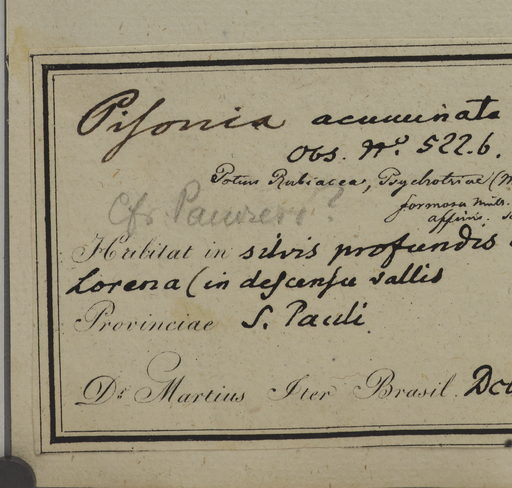 Pisonia acuminata
Obs. No. 522.b.
Potius Rubiacea, Psychotriae (M
formosa Mül.
affinis.
Cfr.
Habitat in silvis profundis
Lorena (in descensu vallis
Provinciae S. Pauli
Dr. Martius Iter Brasil. Dec